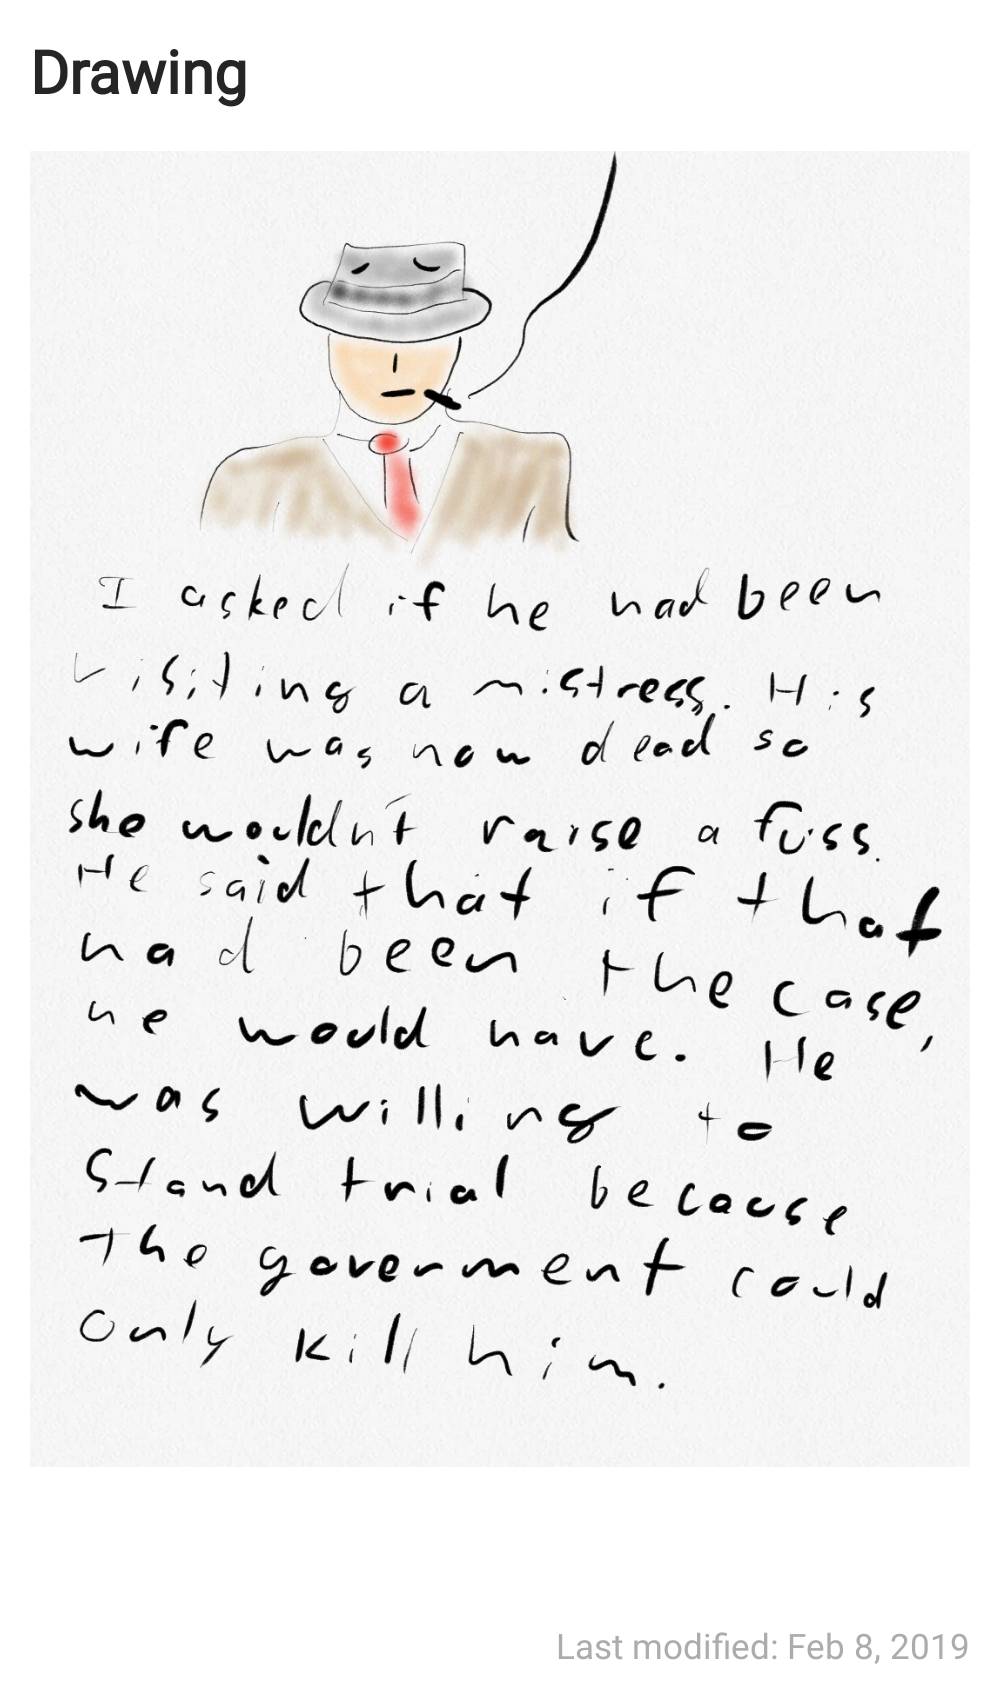 Drawing
I asked if he had been
visiting a mistress. His
wife was now dead so
she wouldn't raise a fuss.
He said that if that
had been the case,
he would have. He
was willing to
stand trial because
the goverment could
only kill him.
Last modified: Feb 8, 2019